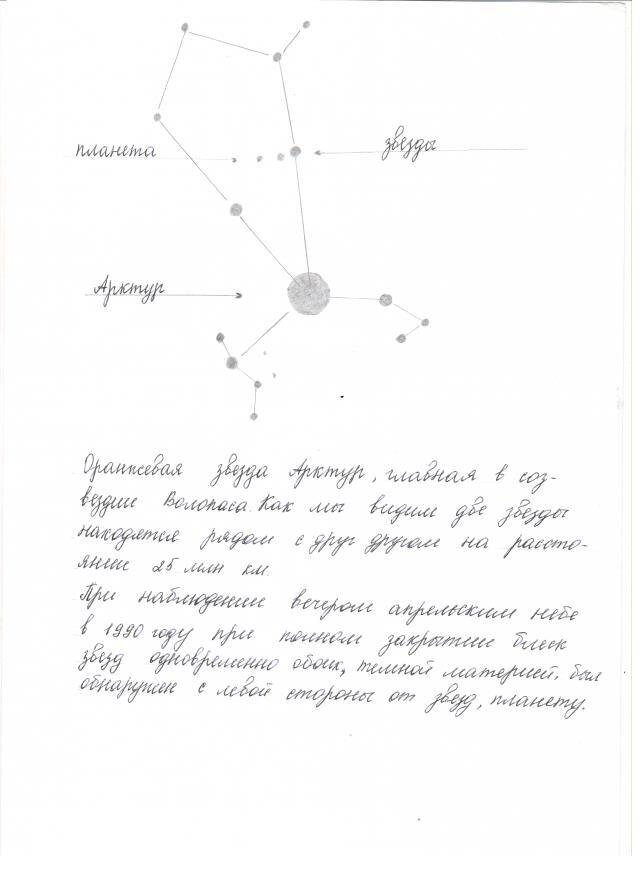 планета
звезды
Арктур
Оранжевая звезда Арктур, главная в соз-
вездии Волопаса. Как мы видим две звезды
находятся рядом с друг другом на рассто-
янии 25 млн км.
При наблюдении вечером апрельским небе
в 1990 году при полном закрытии блеск
звезд одновременно обоих, темной материей. был
обнаружен с левой стороны от звезд, планету.